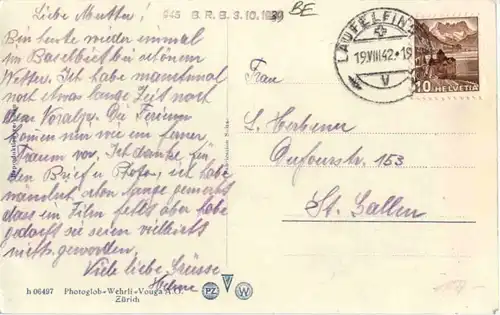 Liebe Mutter!
Bin heute wieder einmal
im Baselbiet bei schönem
Wetter. Ich habe manchmal
noch etwas lange Zeit nach
dem Voralp. Die Ferien
kommen mir wie ein ferner
Traum vor. Ich danke für
den Brief u. Fotos, ich habe
nämlich schon lange gemerkt
dass ein Film fehlt aber habe
gedacht sie seien vielleicht
nichts geworden.
Viele liebe Grüsse
945 B.R.B. 3.10.1939
BE
LÄUFELFINGEN
19.VIII.42.-19
V
10 HELVETIA
Frau
Dufourstr. 153
St. Gallen
h 06497 Photoglob-Wehrli-Vouga A.G.
Zürich
PZ
V
W